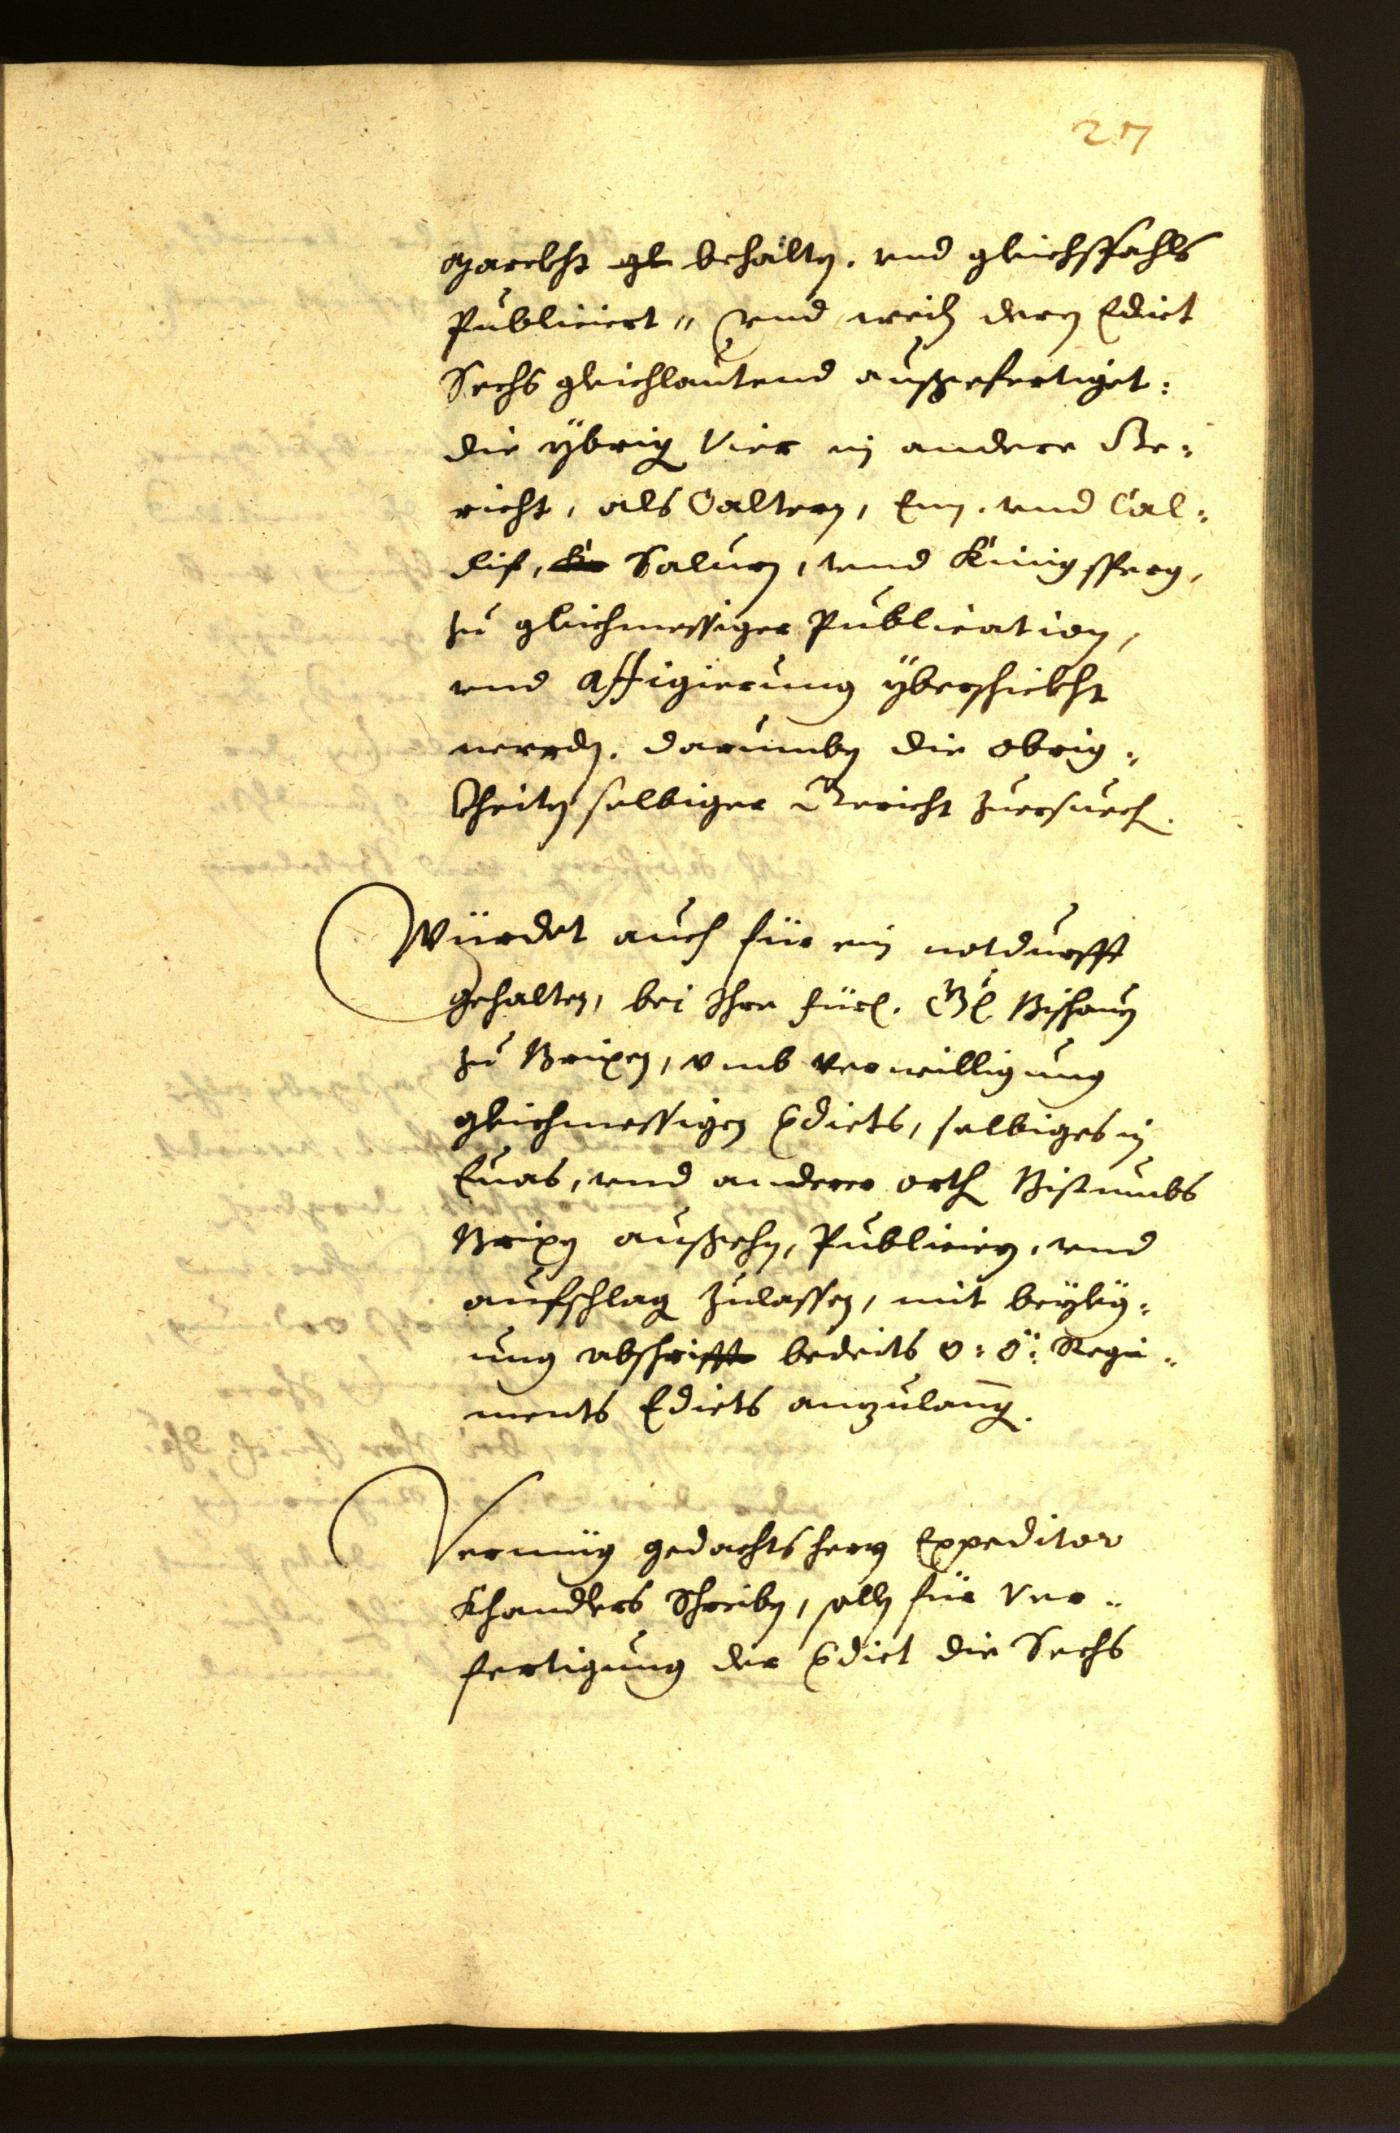 27
Marckht gl behalten. vnd gleichsfahls
Publiciert, vnd weiln deren Edict
Sechs gleichlautend außgefertiget:
die ÿbrig Vier in andere Ge:
richt, als Caltern, Enn. vnd Cal:
dif, Salurn, vnd Künigsperg,
zu gleichmessiger Publication,
vnd Affigierung ÿberschickht
werden. darumben die obrig:
kheiten selbiger Gericht zuersuech.
Würdet auch für ein notdurfft
gehalten, bei Ihr fürl. Gl Bischoven
zu Brixen, vmb verwilligung
gleichmessigen Edicts, selbiges in
Evas, vnd anderer orth Bistumbs
Brixen außgehn, Publiciern, vnd
aufschlag zulassen, mit beÿleg:
ung abschrifft bedeits O: Ö: Regi:
ments Edicts anzulang.
Vermüg gedachts herrn Expeditor
Khandlers Schreiben, solln für Ver:
fertigung der Edict die Sechs